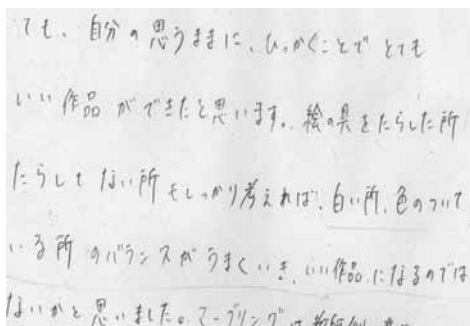 ても、自分の思うままに、ひっかくことで とても
いい作品ができたと思います。絵の具をたらした所
たらして ない所 をしっかり考えれば、白い所、色のついて
いる所 のバランスがうまくいき、いい作品になるのでは
ないかと思いました。マーブリングは